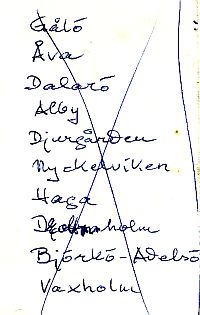 Gålö
Åva
Dalarö
Alby
Djurgården
Nyckelviken
Haga
Björkö-Adelsö
Vaxholm